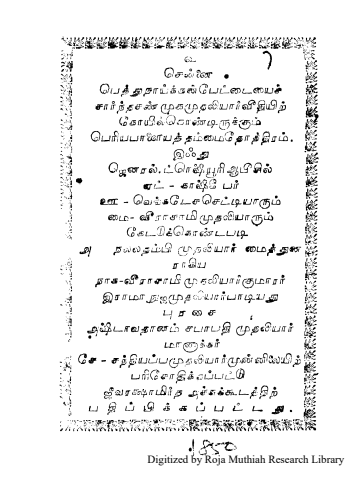 உ
சென்னை
பெத்துநாய்க்கன்பேட்டையைச்
சார்ந்தசண்முகமுதலியார்வீதியிற்
கோயில்கொண்டிருக்கும்
பெரியபாளயத்தம்மைதோத்திரம்.
இஃது
ஜெனரல், ட்ரெஷெரி ஆபீசில்
ஏட் - காஷீபேர்
ஊ - வெங்கடேசசெட்டியாரும்
மை - வீராசாமிமுதலியாரும்
கேட்டுக்கொண்டபடி
அ நல்லதம்பி முதலியார் மைத்துன
ராகிய
நாக-வீராசாமிமுதலியார்குமாரர்
இராமாநுஜமுதலியார்பாடியது
புரசை
அஷ்டாவதானம் சபாபதி முதலியார்
மாணாக்கர்
சே - சந்தியப்பமுதலியார்முன்னிலையிற்
பரிசோதிக்கப்பட்டு
ஜீவரக்ஷாமிர்த அச்சுக்கூடத்திற்
பதிப்பிக்கப்பட்டது.
Digitized by Roja Muthiah Research Library